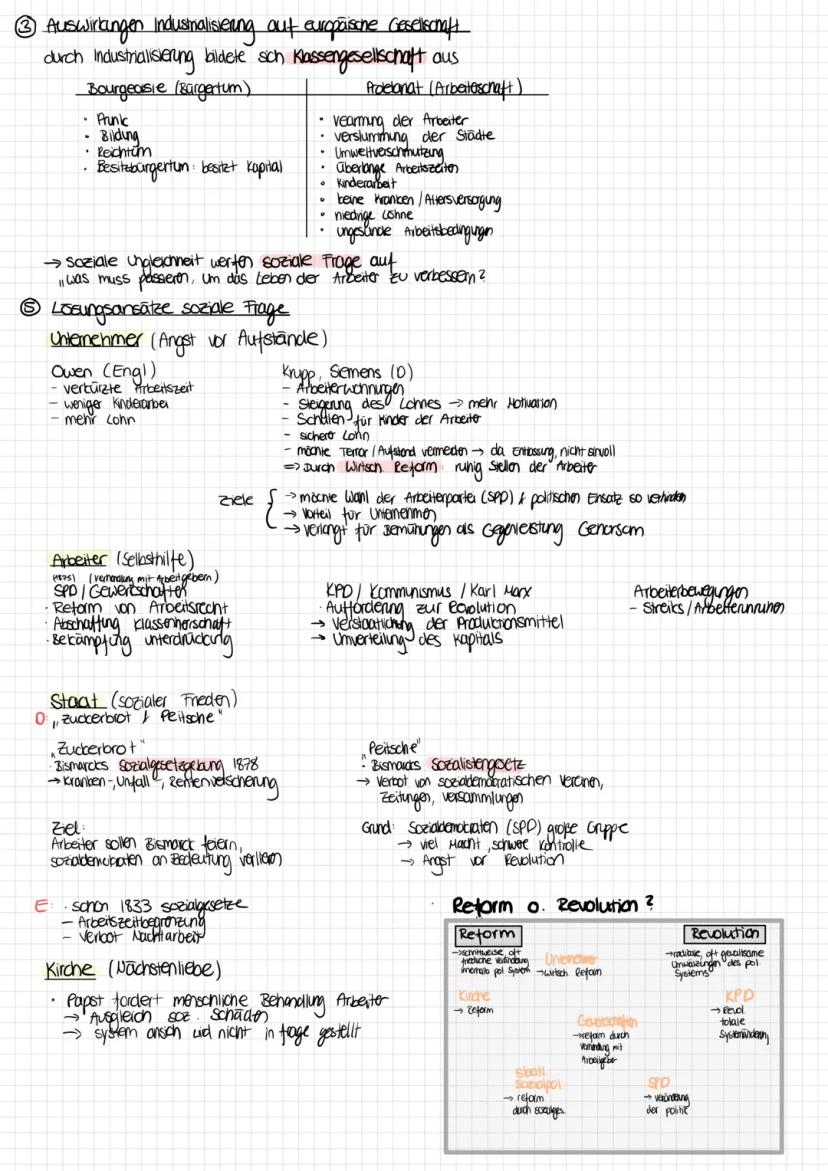 ③ Auswirkungen Industrialisierung auf europäische Gesellschaft
durch Industrialisierung bildete sich Klassengesellschaft aus
Bourgeoisie (Bürgertum)
· Prunk
· Bildung
· Reichtum
· Besitzbürgertum: besitzt Kapital
Proletariat (Arbeiterschaft)
· verarmung der Arbeiter
· verslummung der Städte
· Umweltverschmutzung
· überlange Arbeitszeiten
· Kinderarbeit
· keine Kranken / Altersversorgung
· niedrige Löhne
· ungesunde Arbeitsbedingungen
→ soziale Ungleichheit werfen soziale Frage auf
„was muss passieren, um das Leben der Arbeiter zu verbessern?
⑤ Lösungsansätze soziale Frage
Unternehmer (Angst vor Aufstände)
Owen (Engl)
- verkürzte Arbeitszeit
- weniger Kinderarbei
- mehr Lohn
Krupp, Siemens (D)
- Arbeiterwohnungen
- Steigerung des Lohnes → mehr Motivation
- Schulen für Kinder der Arbeiter
- sicherer Lohn
- möchte Terror / Aufstand vermeiden → da Entlassung, nicht sinvoll
=> Durch Wirtsch. Reform: ruhig stellen der Arbeiter
Ziele
→ möchte Wahl der Arbeiterpartei (SPD) & politischen Einsatz so verhindern
→ Vorteil für Unternehmen
→ verlangt für Bemühungen als Gegenleistung Gehorsam
Arbeiter (Selbsthilfe)
(1875) (Verhandlung mit Arbeitgebern)
SPD / Gewerkschaften
· Reform von Arbeitsrecht
· Abschaffung Klassenherschaft
· Bekämpfung unterdrückung
KPD / Kommunismus / Karl Marx
· Aufforderung zur Revolution
→ Verstaatlichung der Produktionsmittel
→ Umverteilung des Kapitals
Arbeiterbewegungen
- Streiks / Arbeiterunruhen
Staat (sozialer Frieden)
D: „Zuckerbrot & Peitsche"
„Zuckerbrot"
· Bismarcks Sozialgesetzgebung 1878
→ Kranken-, Unfall-, Rentenversicherung
Ziel:
Arbeiter sollen Bismarck feiern,
sozialdemokraten an Bedeutung verliern
„Peitsche"
· Bismarcks Sozialistengesetz
→ Verbot von sozialdemokratischen Vereinen,
Zeitungen, Versammlungen
Grund: Sozialdemokraten (SPD) große Gruppe
→ viel Macht, schwere Kontrolle
→ Angst vor Revolution
E: · schon 1833 sozialgesetze
- Arbeitszeitbegrenzung
- Verbot Nachtarbeit
Kirche (Nächstenliebe)
· Papst fordert menschliche Behandlung Arbeiter
→ Ausgleich soz. Schäden
→ System ansich wird nicht in frage gestellt
· Reform o. Revolution?
Reform
→ schrittweise, oft
friedliche Veränderung
innerhalb pol System
Unternehmer
→ wirtsch. Reform
Revolution
→ radikale, oft gewaltsame
Umwälzungen des pol.
Systems
Kirche
→ Reform
KPD
→ Revol.
totale
Systemänderung
Gewerkschaften
→ reform durch
Verhandlung mit
Arbeitgeber
staatl.
Sozialpol.
→ reform
durch sozialges.
SPD
→ veränderung
der politik